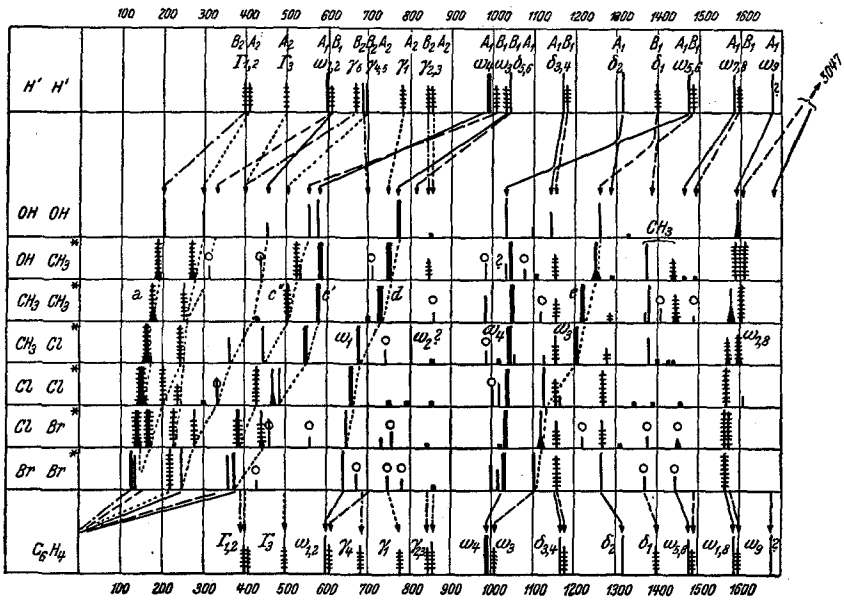 100 200 300 400 500 600 700 800 900 1000 1100 1200 1300 1400 1500 1600
B₂ A₂ A₂ A₁ B₁ B₂ B₂ A₂ A₂ B₂ A₂ A₁ B₁ B₁ A₁ A₁ B₁ A₁ B₁ A₁ B₁ A₁ B₁ A₁
Γ₁,₂ Γ₃ ω₁,₂ γ₆ γ₄,₅ γ₁ γ₂,₃ ω₄ ω₃ δ₅,₆ δ₃,₄ δ₂ δ₁ ω₅,₆ ω₇,₈ ω₉
H' H' ? 3047
OH OH
CH₃
OH CH₃* ?
CH₃ CH₃* a c" c' d e
CH₃ Cl* ω₁ ω₂? ω₄ ω₃ ω₇,₈
Cl Cl*
Cl Br*
Br Br*
C₆H₄ Γ₁,₂ Γ₃ ω₁,₂ γ₄ γ₁ γ₂,₃ ω₄ ω₃ δ₃,₄ δ₂ δ₁ ω₅,₆ ω₁,₈ ω₉ ?
100 200 300 400 500 600 700 800 900 1000 1100 1200 1300 1400 1500 1600